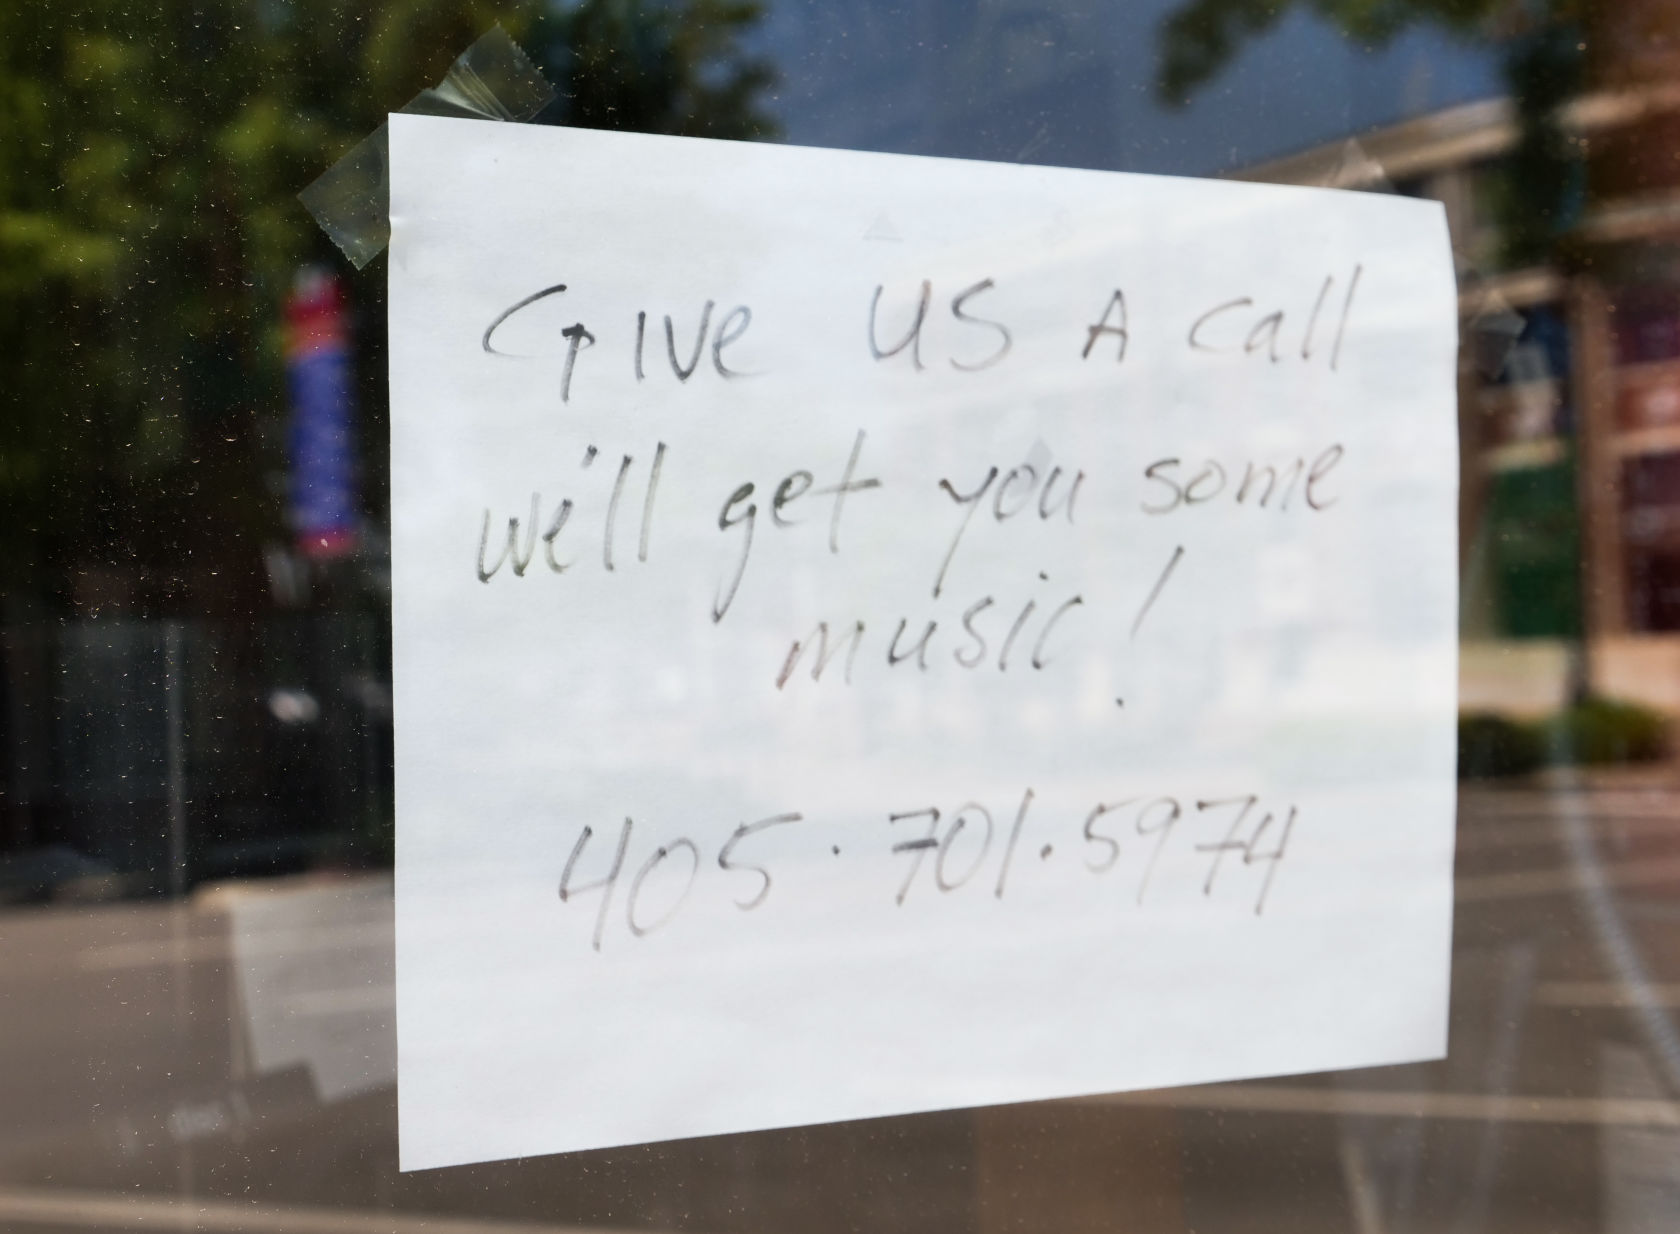 Give US A call
we'll get you some
music!
405·701·5974